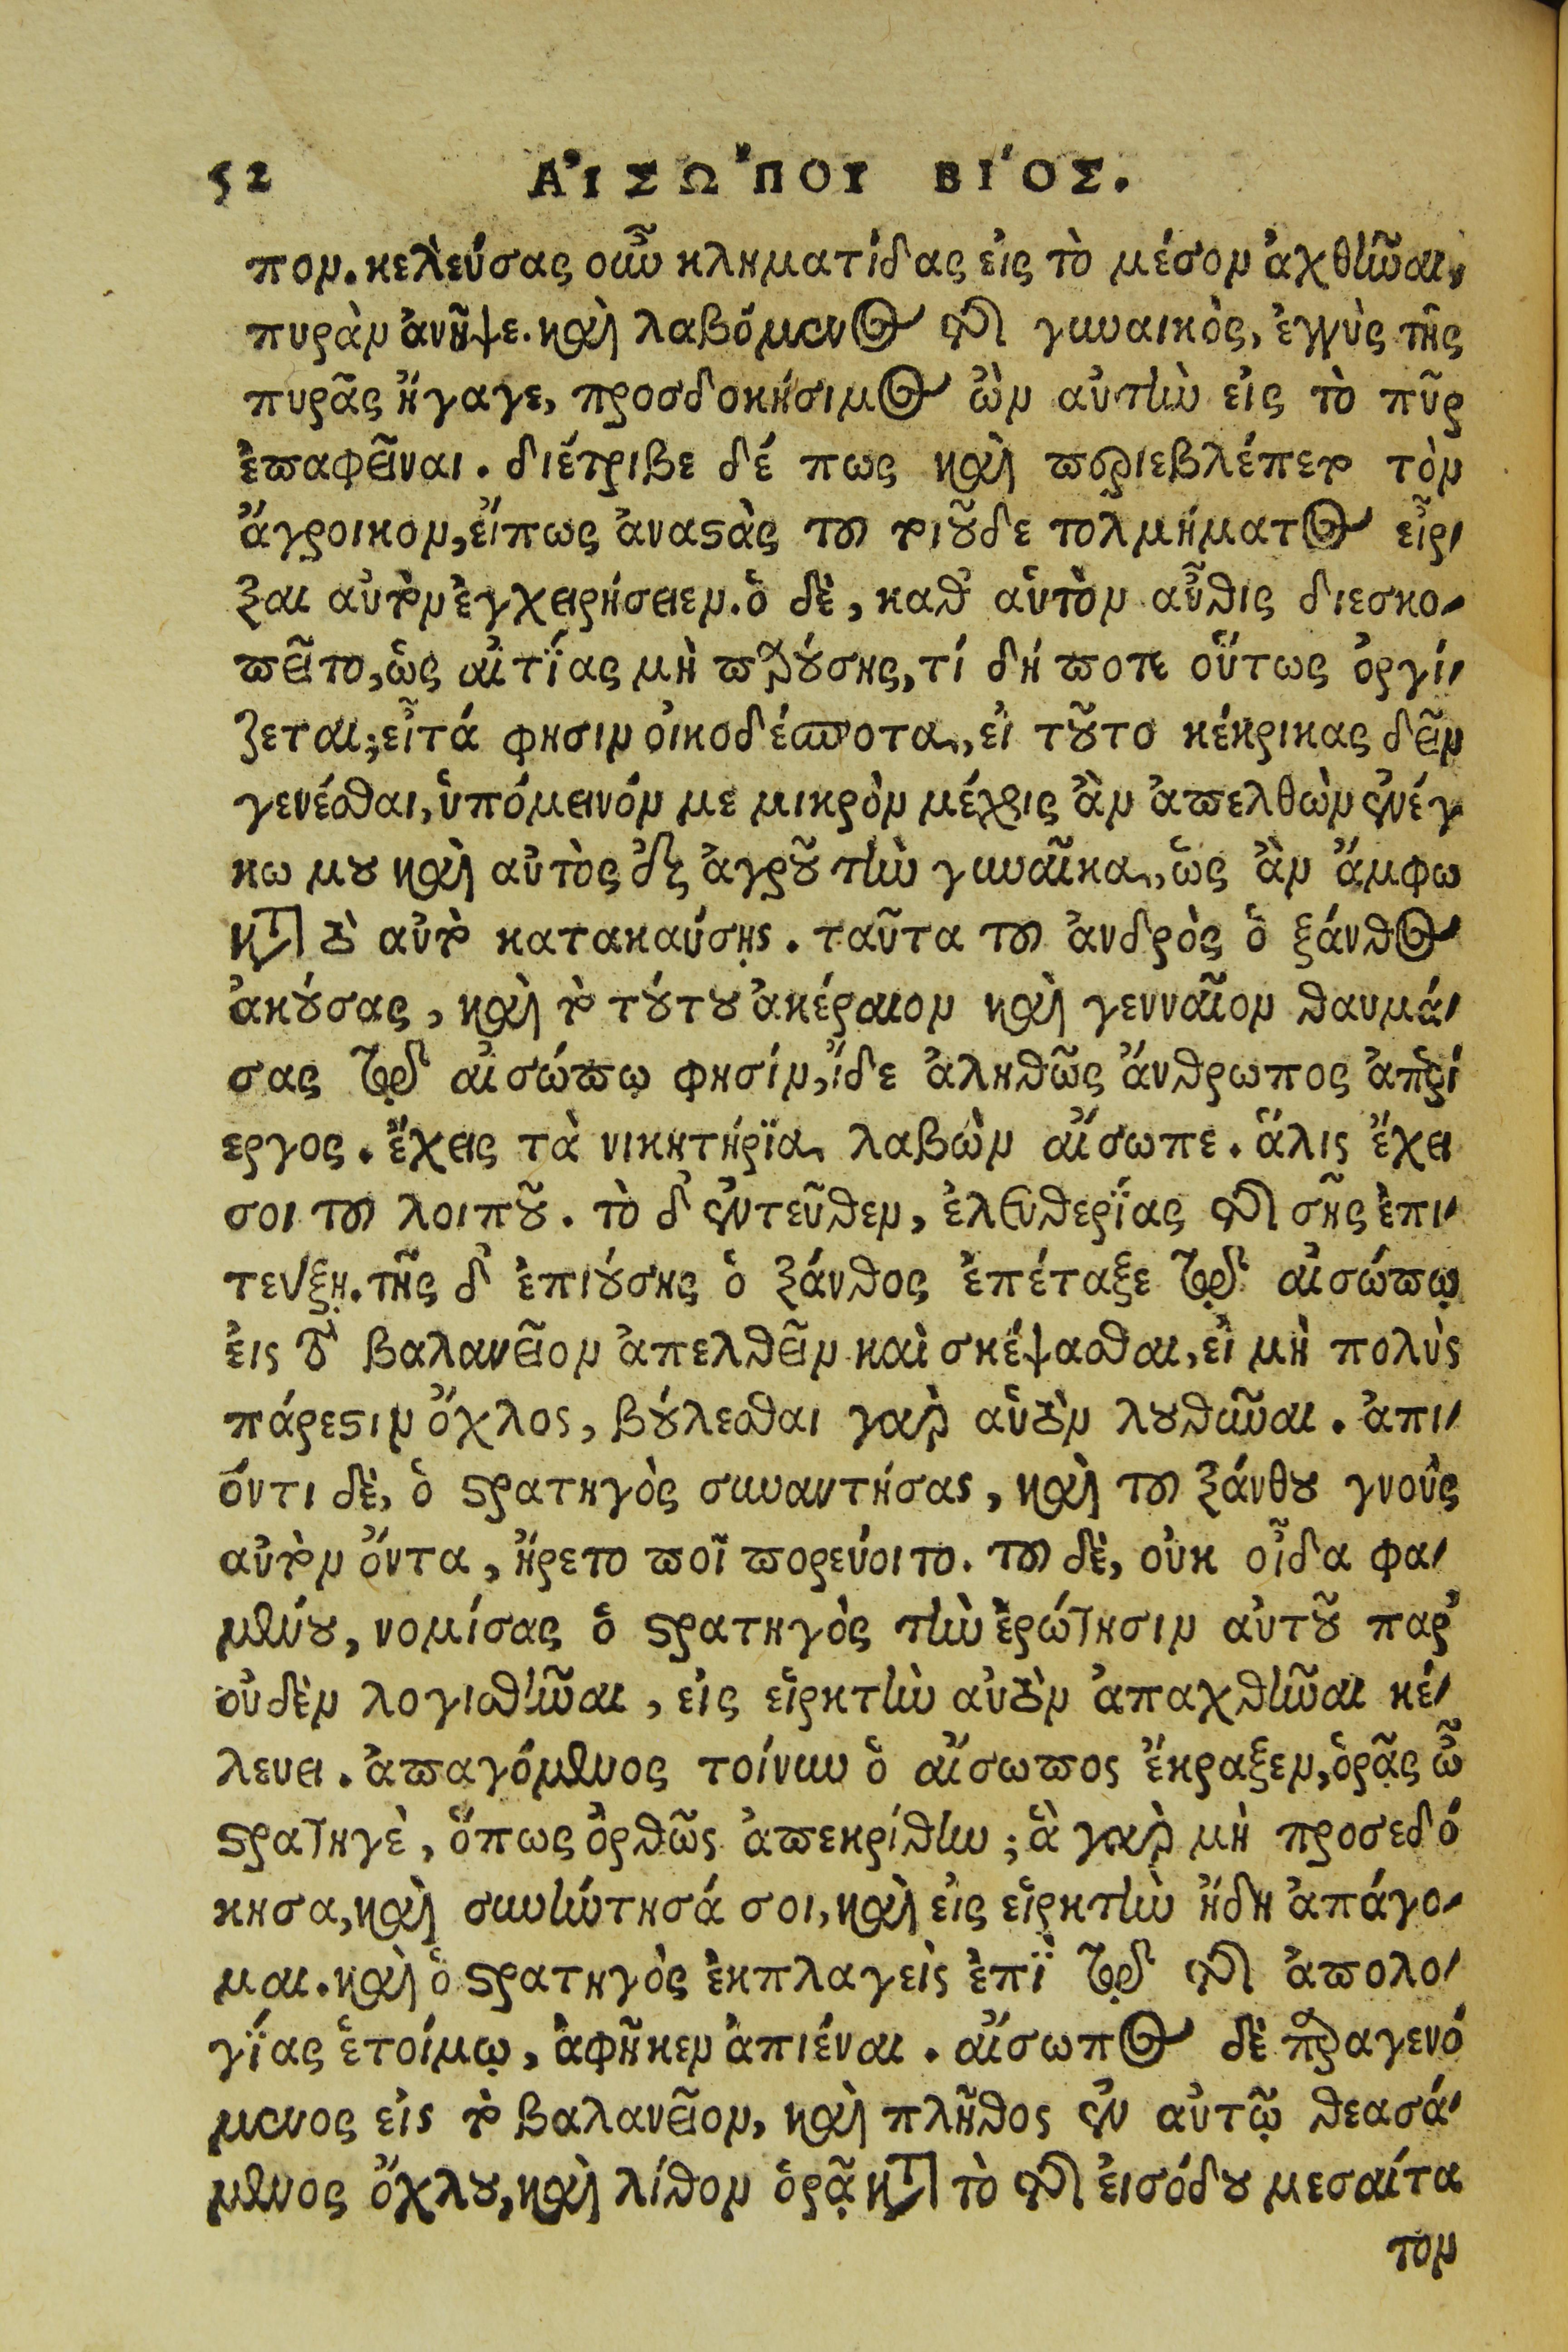 52 ΑἸΣΩ῎ΠΟΥ ΒΙ΄ΟΣ.
πον. κελεύσας οὖν κληματίδας εἰς τὸ μέσον ἀχθῆναι,
πυρὰν ἀνῆψε. καὶ λαβόμενος τῆς γυναικὸς, ἐγγὺς τῆς
πυρᾶς ἤγαγε, προσδοκήσιμος ὢν αὐτὴν εἰς τὸ πῦρ
ἐπαφεῖναι. διέτριβε δέ πως καὶ περιεβλέπετο τὸν
ἄγροικον, εἴπως ἀναστὰς τοῦ τοιοῦδε τολμήματος εἶρ-
ξαι αὐτὸν ἐγχειρήσειεν. ὁ δὲ, καθ' αὑτὸν αὖθις διεσκο-
πεῖτο, ὡς αἰτίας μὴ παρούσης, τί δή ποτε οὕτως ὀργί-
ζεται; εἶτά φησιν οἰκοδέσποτα, εἰ τοῦτο κέκρικας δεῖν
γενέσθαι, ὑπόμεινόν με μικρὸν μέχρις ἂν ἀπελθὼν ἐνέγ
κω μου καὶ αὐτὸς ἐξ ἀγροῦ τὴν γυναῖκα, ὡς ἂν ἄμφω
κατὰ τὸ αὐτὸ κατακαύσῃς. ταῦτα τοῦ ἀνδρὸς ὁ ξάνθος
ἀκούσας, καὶ τὸ τούτου ἀκέραιον καὶ γενναῖον θαυμά-
σας τῷ αἰσώπῳ φησίν, ἴδε ἀληθῶς ἄνθρωπος ἀπερί
εργος. ἔχεις τὰ νικητήρϊα λαβὼν αἴσωπε. ἅλις ἔχει
σοι τοῦ λοιποῦ. τὸ δ' ἐντεῦθεν, ἐλευθερΐας τῆς σῆς ἐπι-
τεύξῃ. τῆς δ' ἐπιούσης ὁ ξάνθος ἐπέταξε τῷ αἰσώπῳ
εἰς τὸ βαλανεῖον ἀπελθεῖν καὶ σκέψασθαι, εἰ μὴ πολὺς
πάρεστιν ὄχλος, βούλεσθαι γὰρ αὑτὸν λουθῆναι. ἀπι-
όντι δὲ, ὁ στρατηγὸς συναντήσας, καὶ τοῦ ξάνθου γνοὺς
αὐτὸν ὄντα, ἤρετο ποῖ πορεύοιτο. τοῦ δὲ, οὐκ οἶδα φα-
μένου, νομίσας ὁ στρατηγὸς τὴν ἐρώτησιν αὐτοῦ παρ'
οὐδὲν λογισθῆναι, εἰς εἱρκτὴν αὐτὸν ἀπαχθῆναι κέ-
λευει. ἀπαγόμενος τοίνυν ὁ αἴσωπος ἔκραξεν, ὁρᾷς ὦ
στρατηγὲ, ὅπως ὀρθῶς ἀπεκρίθην; ἃ γὰρ μὴ προσεδό
κησα, καὶ συνήντησά σοι, καὶ εἰς εἱρκτὴν ἤδη ἀπάγο-
μαι. καὶ ὁ στρατηγὸς ἐκπλαγεὶς ἐπῒ τῷ τῆς ἀπολο-
γΐας ἑτοίμῳ, ἀφῆκεν ἀπιέναι. αἴσωπος δὲ παραγενό
μενος εἰς τὸ βαλανεῖον, καὶ πλῆθος ἐν αὐτῷ θεασά-
μενος ὄχλου, καὶ λίθον ὁρᾷ κατὰ τὸ τῆς εἰσόδου μεσαίτα
τον